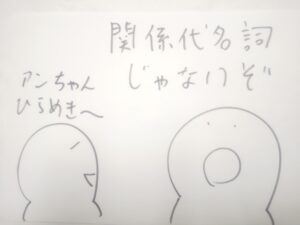 関係代名詞
じゃないぞ
アンちゃん
ひらめき〜